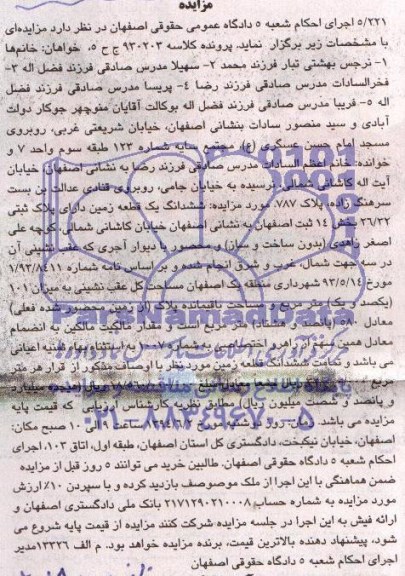 مزایده
۵/۲۲۱ اجرای احکام شعبه ۵ دادگاه عمومی حقوقی اصفهان در نظر دارد مزایده‌ای
با مشخصات زیر برگزار نماید. پرونده کلاسه ۹۳۰۲۰۳ ج ح ۵، خواهان: خانم‌ها
۱- نرجس بهشتی تبار فرزند محمد ۲- سهیلا مدرس صادقی فرزند فضل اله ۳-
فخرالسادات مدرس صادقی فرزند رضا ۴- پریسا مدرس صادقی فرزند فضل
اله ۵- فریبا مدرس صادقی فرزند فضل اله بوکالت آقایان منوچهر جوکار دولت
آبادی و سید منصور سادات بنشانی اصفهان، خیابان شریعتی غربی، روبروی
مسجد امام حسن عسکری (ع)، مجتمع سایه شماره ۱۲۳ طبقه سوم واحد ۷ و
خوانده: خانم اعظم السادات مدرس صادقی فرزند رضا به نشانی اصفهان، خیابان
آیت اله کاشانی شمالی، نرسیده به خیابان جامی، روبروی قنادی عدالت بن بست
سرهنگ زاده، پلاک ۷۸۷، مورد مزایده: ششدانگ یک قطعه زمین دارای پلاک ثبتی
۲۶/۲۲ بخش ۱۴ ثبت اصفهان به نشانی اصفهان خیابان کاشانی شمالی، کوچه علی
اصغر زاهدی (بدون ساخت و ساز) و محصور با دیوار آجری که عقب نشینی آن
در سه جهت شمال، غرب و شرق انجام شده و بر اساس نامه شماره ۱/۹۳/۸۴۱۱
مورخ ۹۳/۵/۱۴ شهرداری منطقه یک اصفهان مساحت کل عقب نشینی به میزان ۱۰۱
(یکصد و یک) متر مربع و مساحت باقیمانده پلاک (زمین محصور شده فعلی)
معادل ۵۸۰ (پانصد و هشتاد) متر مربع است و مقدار مالکیت مالکین به انضمام
معادل همین سهم از راهرو اختصاصی به شماره به استثناء بهاء ثمنیه اعیانی
می باشد و تمامت ششدانگ قطعه زمین مورد نظر با اوصاف مذکور از قرار هر متر
مربع معادل مبلغ میلیارد
و پانصد و شصت میلیون ریال) مطابق نظریه کارشناس ارزیابی که قیمت پایه
مزایده می باشد. زمان: روز دوشنبه مورخ ۱۳۹۴/۶/۲ ساعت ۹ الی ۱۰ صبح مکان:
اصفهان، خیابان نیکبخت، دادگستری کل استان اصفهان، طبقه اول، اتاق ۱۰۳، اجرای
احکام شعبه ۵ دادگاه حقوقی اصفهان. طالبین خرید می توانند ۵ روز قبل از مزایده
ضمن هماهنگی با این اجرا از ملک موصوف بازدید کرده و با سپردن ۱۰٪ ارزش
مورد مزایده به شماره حساب ۲۱۷۱۲۹۰۲۱۰۰۰۸ بانک ملی دادگستری اصفهان و
ارائه فیش به این اجرا در جلسه مزایده شرکت کنند مزایده از قیمت پایه شروع می
شود، پیشنهاد دهنده بالاترین قیمت، برنده مزایده خواهد بود. م الف ۱۳۳۲۶ مدیر
اجرای احکام شعبه ۵ دادگاه حقوقی اصفهان
ParsNamadData
۰۲۱-۸۸۳۴۹۶۷۰-۵